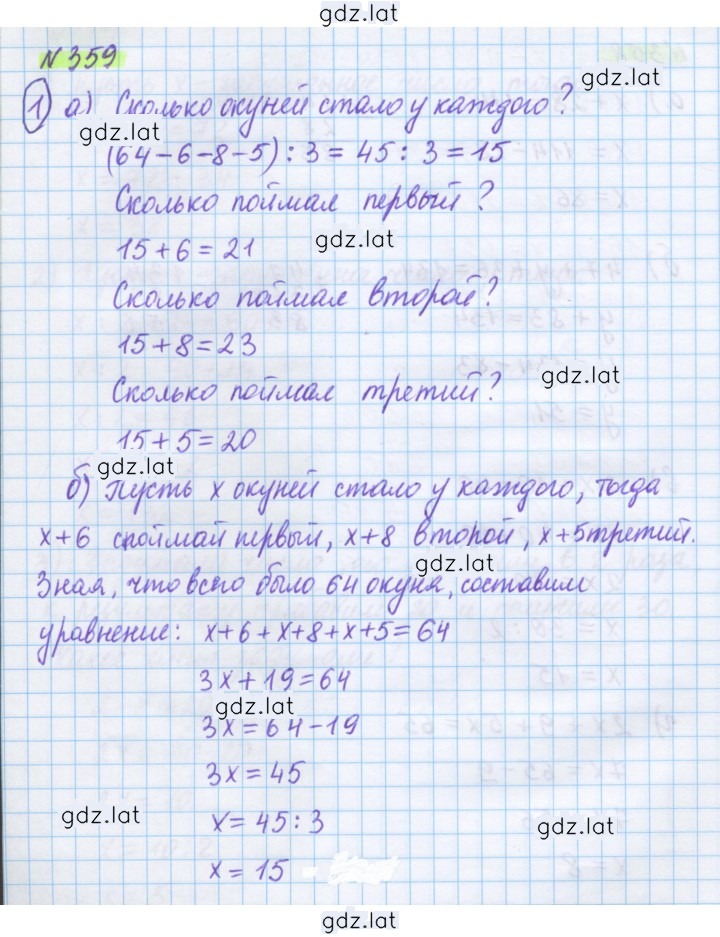 gdz.lat
N 359
gdz.lat
1 а) Сколько окуней стало у каждого?
gdz.lat
(64-6-8-5):3=45:3=15
Сколько поймал первый?
15+6=21 gdz.lat
Сколько поймал второй?
15+8=23
gdz.lat
Сколько поймал третий?
15+5=20
gdz.lat
б) Пусть х окуней стало у каждого, тогда
х+6 споймай первый, х+8 второй, х+5 третий.
gdz.lat
Зная, что всего было 64 окуня, составим
уравнение: х+6+х+8+х+5=64
3х+19=64
gdz.lat
3х=64-19
3х=45
gdz.lat
х=45:3
gdz.lat
х=15
gdz.lat